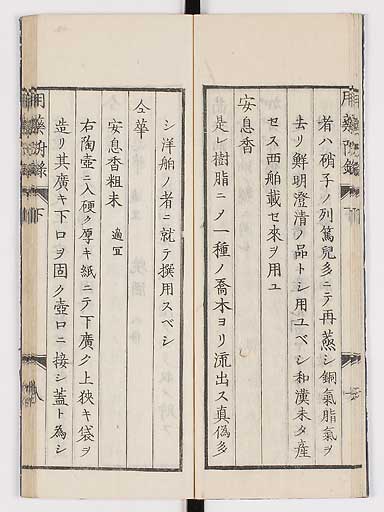 者ハ硝子ノ列篤兒多ニテ再蒸シ銅氣脂氣ヲ
去リ鮮明澄清ノ品トシ用ユベシ和漢未タ產
セス西舶載セ來ヲ用ユ
安息香
是レ樹脂ニメ一種ノ喬木ヨリ流出ス真偽多
シ洋舶ノ者ニ就テ撰用スベシ
仝華
安息香粗末 適宜
右陶壺ニ入硬ク厚キ紙ニテ下廣ク上狹キ袋ヲ
造リ其廣キ下口ヲ固ク壺口ニ接シ蓋ト為シ
用藥附錄 下
八